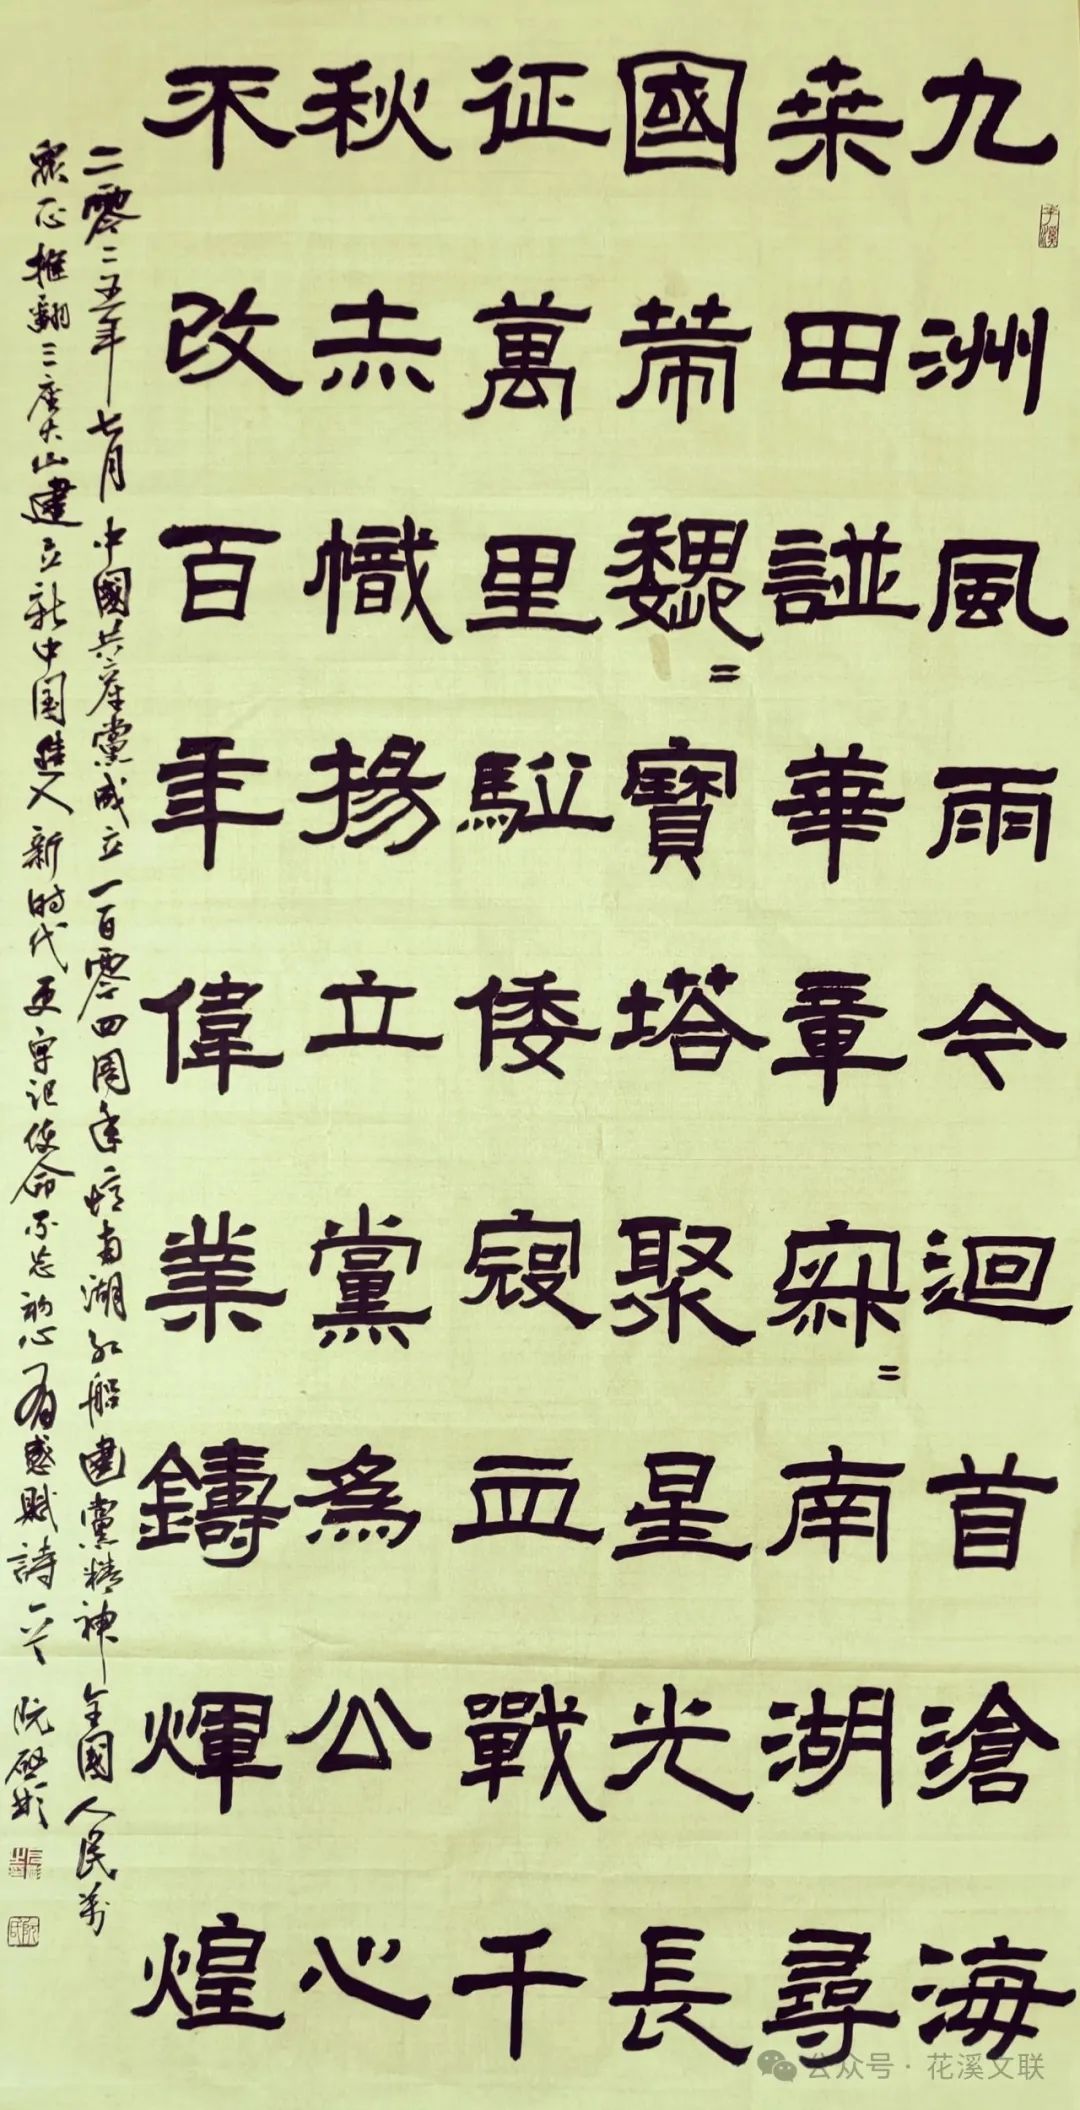 九洲風雨令迴首滄海
桒田諩華章寂〻南湖尋
國帯魏〻寶塔聚星光長
征萬里駈倭寇血戰千
秋赤幟揚立黨為公心
不改百年偉業鑄輝煌
二零二五年七月中國共產黨成立一百零四周年憶南湖紅船建黨精神全國人民萬
眾一心推翻三座大山建立新中国進入新时代更牢记使命不忘初心有感賦詩一首 阮啟彬
公众号·花溪文联